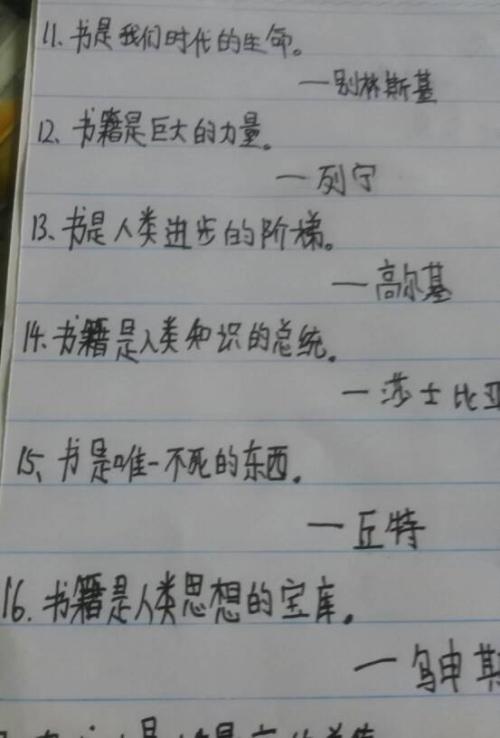 11、书是我们时代的生命。
一别林斯基
12、书籍是巨大的力量。
一列宁
13、书是人类进步的阶梯。
一高尔基
14、书籍是人类知识的总统。
一莎士比亚
15、书是唯一不死的东西。
一丘特
16、书籍是人类思想的宝库。
一乌申斯